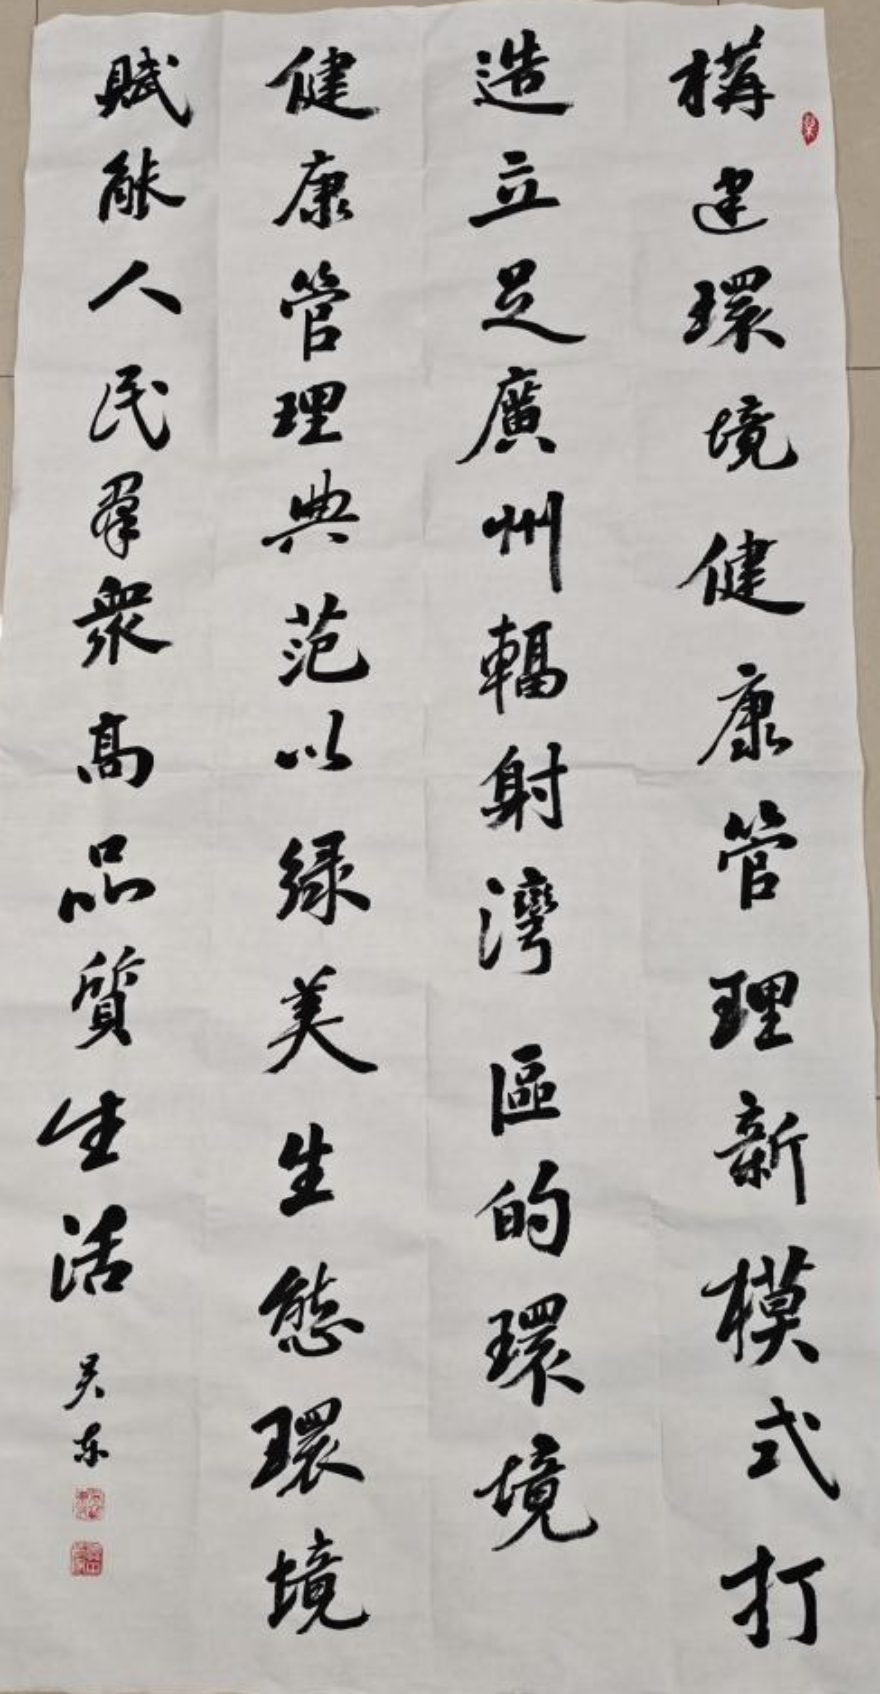 構建環境健康管理新模式打
造立足廣州輻射灣區的環境
健康管理典范以緑美生態環境
賦能人民羣衆高品質生活
吴东